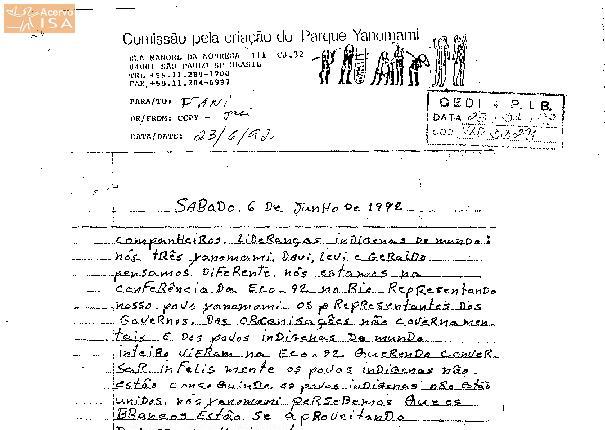 Acervo
ISA
Comissão pela criação do Parque Yanomami
RUA MANOEL DA NOBREGA 111 CJ.32
04001 SÃO PAULO SP BRASIL
TEL +55.11.289-1200
FAX +55.11.284-6997
PARA/TO: FANI
DE/FROM: CCPY -
DATA/DATE: 23/6/92
CEDI - P.I.B.
DATA
COD
SABADO. 6 De Junho De 1992
companheiros. LiDeranças inDigenas Do mundo:
nós TRÊS yanomami. Davi, Levi e GeralDo
pensamos DiFerente, nós estamos na
conFerência Da Eco-92 no Rio Representando
nosso povo yanomami os pRepresentantes Dos
Governos, Das ORganisações não Governamen
tais e Dos povos inDigenas Do mundo
inteiro vieram na Eco-92 querendo conver
sar inFelis mente os povos inDigenas não
estão conceguindo os povos inDigenas não estão
unidos, nós yanomami perSebemos que os
BRancos Estão se aproveitando